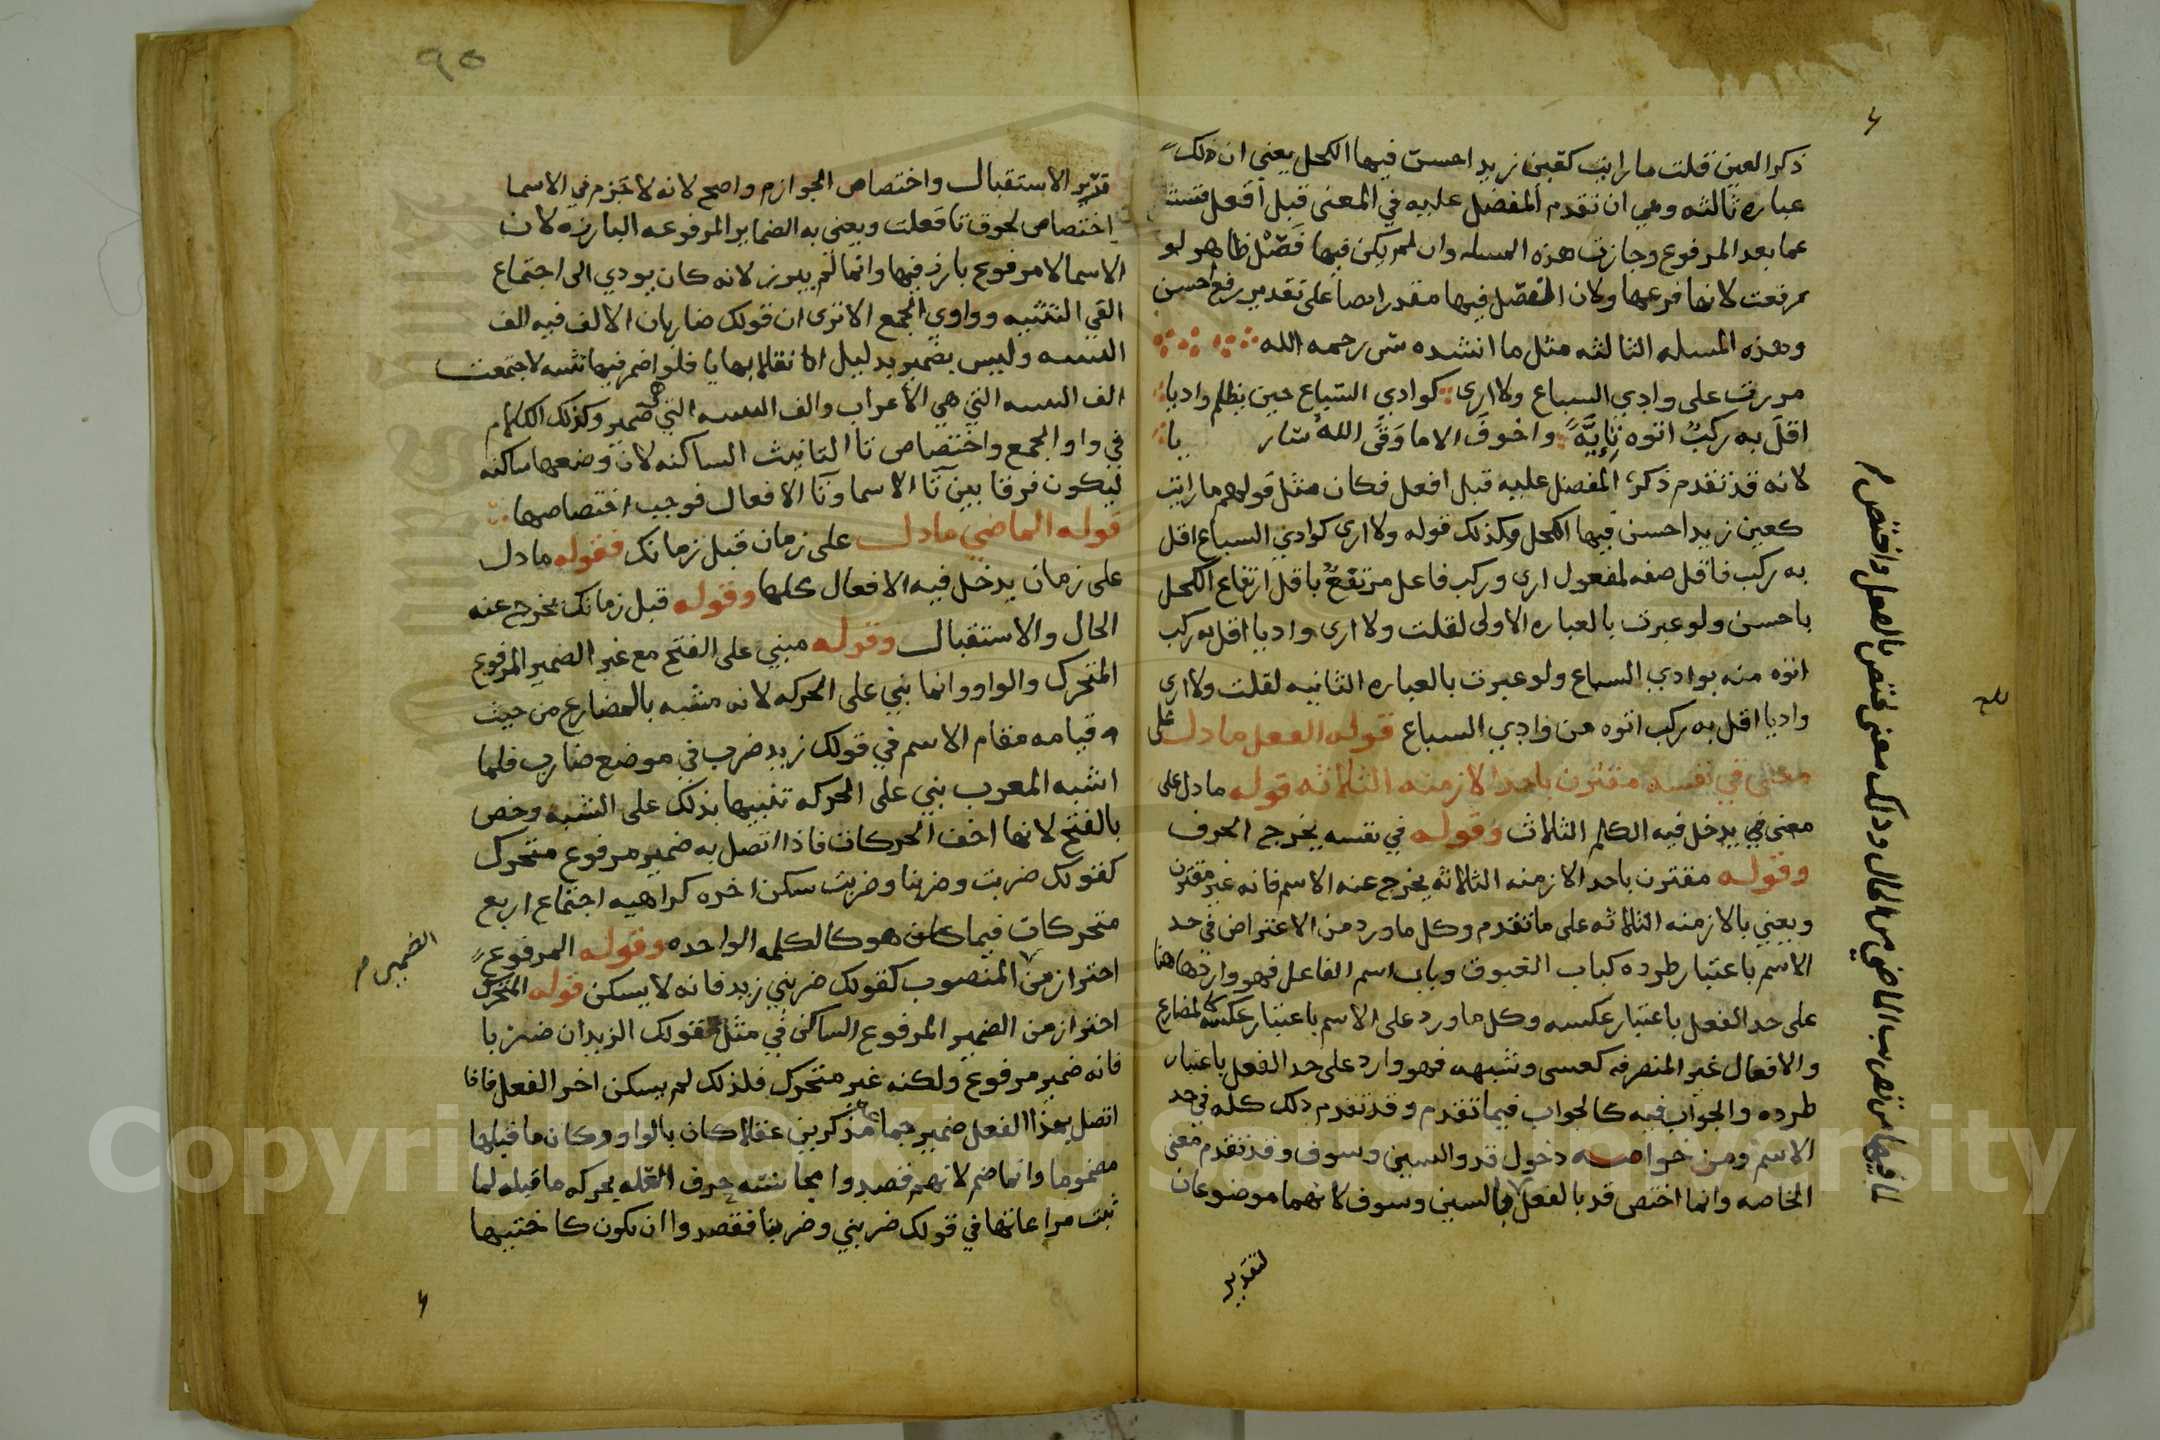 ذكر العين قلت ما رايت كعين زيد احسن فيها الكحل يعني ان ذلك
عباره ثالثه وهي ان تقدم المفضل عليه في المعنى قبل أفعل
عما بعد المرفوع وجازت هذه المسله وان لم يكن فيها فَصْل ظاهر لو
رفعت لانها فرعها ولان الفصل فيها مقدر ايضا على تقدير رفع احسن
وهذه المسله الثالثه مثل ما انشده س رحمه الله
مررت على وادي السباع ولا ارى كوادي السباع حين يظلم واديا
اقل به ركبٌ اتوه تَإِيَّةً واخوفَ الا ما وَقَى اللهُ ساريا
لانه قد تقدم ذكر المفضل عليه قبل افعل فكان مثل قولهم ما رايت
كعين زيد احسن فيها الكحل وكذلك قوله ولا ارى كوادي السباع اقل
به ركب فاقل صفه لمفعول ارى وركب فاعل مرتفعٌ باقل ارتفاع الكحل
باحسن ولو عبرت بالعباره الاولى لقلت ولا ارى واديا اقل به ركب
اتوه منه بوادي السباع ولو عبرت بالعباره الثانيه لقلت ولا ارى
واديا اقل به ركب اتوه من وادي السباع قوله الفعل ما دل على
معنى في نفسه مقترن باحد الازمنه الثلاثه قوله ما دل على
معنى يدخل فيه الكلم الثلاث وقوله في نفسه يخرج الحرف
وقوله مقترن باحد الازمنه الثلاثه يخرج عنه الاسم فانه غير مقترن
ويعني بالازمنه الثلاثه على ما تقدم وكل ما ورد من الاعتراض في حد
الاسم باعتبار طرده كباب الغبوق وباب اسم الفاعل فهو وارد هاهنا
على حد الفعل باعتبار عكسه وكل ما ورد على الاسم باعتبار عكسه كالمضارع
والافعال غير المنصرفه كعسى وشبهه فهو وارد على حد الفعل باعتبار
طرده والجواب فيه كالجواب فيما تقدم وقد تقدم ذلك كله في حد
الاسم ومن خواصه دخول قد والسين وسوف وقد تقدم معنى
الخاصه وانما اختص قد بالفعل والسين وسوف لانهما موضوعان
لتقدير
لما فيها من تقريب الماضي من الحال وذلك معنى مختص بالفعل واختص
بلغ
٩٥
تقدير الاستقبال واختصاص الجوازم واضح لانه لا جزم في الاسما
واختصاص لحوق تا فعلت ويعني به الضماير المرفوعه البارزه لان
الاسما لا مرفوع بارز فيها وانما لم يبرز لانه كان يودي الى اجتماع
الفي التثنيه وواوي الجمع الا ترى ان قولك ضاربان الالف فيه الف
التثنيه وليس بضمير بدليل انقلابها يا فلو اضمر فيها تثنيه لاجتمعت
الف التثنيه التي هي الأعراب والف التثنيه التي هي ضمير وكذلك الكلام
في واو الجمع واختصاص تا التانيث الساكنه لان وضعها ساكنه
ليكون فرقا بين تا الاسما وتا الافعال فوجب اختصاصها
قوله الماضي ما دل على زمان قبل زمانك فقوله ما دل
على زمان يدخل فيه الافعال كلها وقوله قبل زمانك يخرج عنه
الحال والاستقبال وقوله مبني على الفتح مع غير الضمير المرفوع
المتحرك والواو وانما بني على الحركه لانه مشبه بالمضارع من حيث
قيامه مقام الاسم في قولك زيد ضرب في موضع ضارب فلما
اشبه المعرب بني على الحركه تنبيها بذلك على الشبه وخص
بالفتح لانها اخف الحركات فاذا اتصل به ضمير مرفوع متحرك
كقولك ضربت وضربنا وضربت سكن اخره كراهيه اجتماع اربع
متحركات فيما هو كالكلمه الواحده وقوله المرفوع
احتراز من الضمير المنصوب كقولك ضربني زيد فانه لا يسكن قوله المتحرك
احتراز من الضمير المرفوع الساكن في مثل قولك الزيدان ضربا
فانه ضمير مرفوع ولكنه غير متحرك فلذلك لم يسكن اخر الفعل فاذا
اتصل بهذا الفعل ضمير جماعه مذكرين عقلا كان بالواو وكان ما قبلها
مضموما وانما ضم لانهم قصدوا مجانسه حرف العله بحركه ما قبله لما
ثبت مراعاتها في قولك ضربني وضربنا فقصدوا ان تكون كاختيها
Copyright © King Saud University